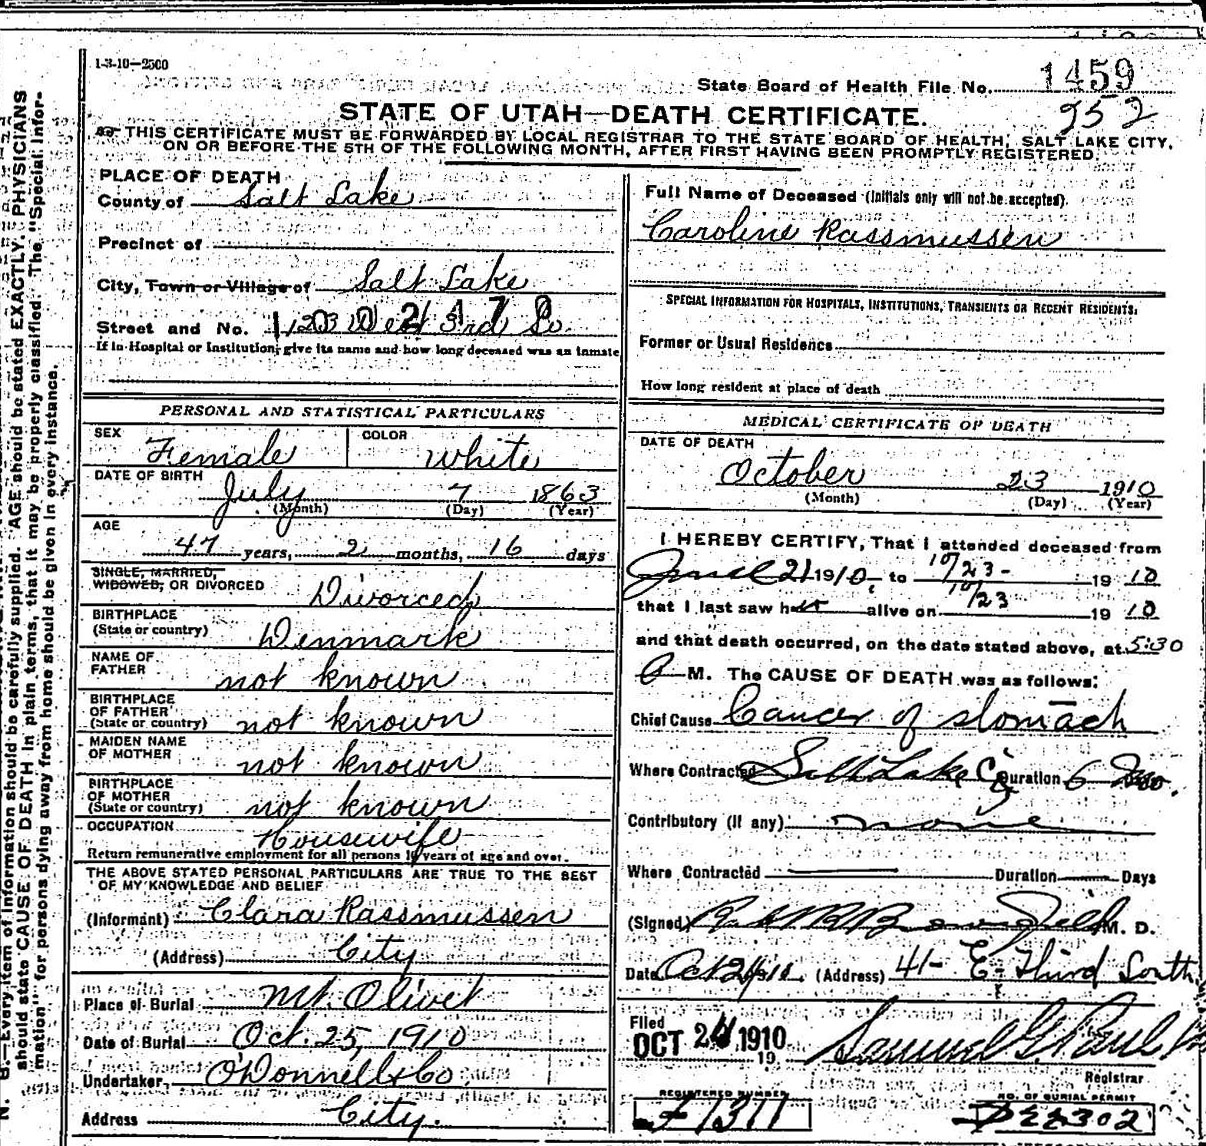 1-3-10—2500
State Board of Health File No. 1459
952
STATE OF UTAH—DEATH CERTIFICATE.
THIS CERTIFICATE MUST BE FORWARDED BY LOCAL REGISTRAR TO THE STATE BOARD OF HEALTH, SALT LAKE CITY,
ON OR BEFORE THE 5TH OF THE FOLLOWING MONTH, AFTER FIRST HAVING BEEN PROMPTLY REGISTERED.
PLACE OF DEATH
County of Salt Lake
Precinct of
City, Town or Village of Salt Lake
Street and No. 3rd So
If in Hospital or Institution, give its name and how long deceased was an inmate
Full Name of Deceased (Initials only will not be accepted).
Caroline Rassmussen
SPECIAL INFORMATION FOR HOSPITALS, INSTITUTIONS, TRANSIENTS OR RECENT RESIDENTS:
Former or Usual Residence
How long resident at place of death
PERSONAL AND STATISTICAL PARTICULARS
SEX Female COLOR White
DATE OF BIRTH July 7 1863
(Month) (Day) (Year)
AGE
47 years, 2 months, 16 days
SINGLE, MARRIED,
WIDOWED, OR DIVORCED Divorced
BIRTHPLACE
(State or country) Denmark
NAME OF
FATHER not known
BIRTHPLACE
OF FATHER
(State or country) not known
MAIDEN NAME
OF MOTHER not known
BIRTHPLACE
OF MOTHER
(State or country) not known
OCCUPATION Housewife
Return remunerative employment for all persons 10 years of age and over.
THE ABOVE STATED PERSONAL PARTICULARS ARE TRUE TO THE BEST
OF MY KNOWLEDGE AND BELIEF
(Informant) Clara Rassmussen
(Address) City
Place of Burial Mt. Olivet
Date of Burial Oct. 25, 1910
Undertaker, O'Donnell & Co.
Address City.
MEDICAL CERTIFICATE OF DEATH
DATE OF DEATH
October 23 1910
(Month) (Day) (Year)
I HEREBY CERTIFY, That I attended deceased from
June 21 1910 to 10/23- 1910
that I last saw her alive on 10/23 1910
and that death occurred, on the date stated above, at 5:30
A M. The CAUSE OF DEATH was as follows:
Chief Cause Cancer of stomach
Where Contracted Salt Lake Cy Duration 6 mo.
Contributory (if any) none
Where Contracted Duration Days
(Signed) M. D.
Date Oct 24 1910 (Address) 41- E- Third South
Filed
OCT 24 1910
19
Samuel G. Paul
Registrar
REGISTERED NUMBER
1311
NO. OF BURIAL PERMIT
2302
N. B.—Every item of information should be carefully supplied. AGE should be stated EXACTLY. PHYSICIANS
should state CAUSE OF DEATH in plain terms, that it may be properly classified. The "Special Infor-
mation" for persons dying away from home should be given in every instance.